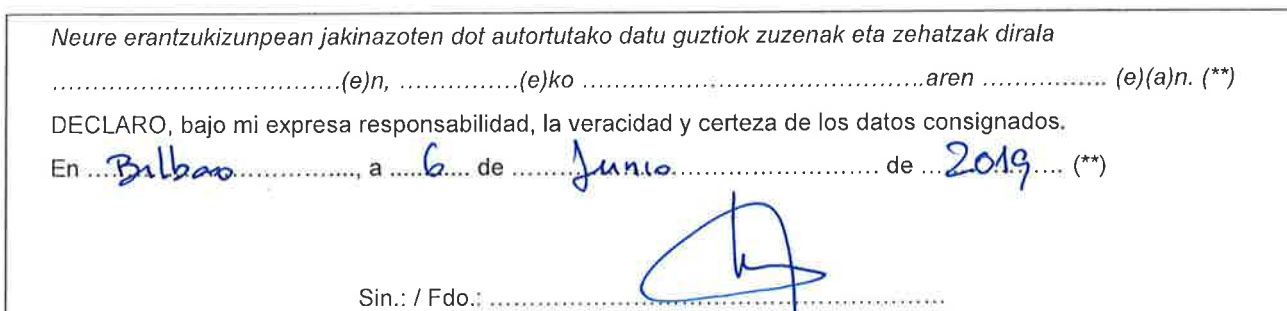 Neure erantzukizunpean jakinazoten dot autortutako datu guztiok zuzenak eta zehatzak dirala
...................................(e)n, ...............(e)ko ..........................................aren ............... (e)(a)n. (**)
DECLARO, bajo mi expresa responsabilidad, la veracidad y certeza de los datos consignados.
En ...Bilbao..............., a .....6.... de ........Junio......................... de ...2019.... (**)
Sin.: / Fdo.: .......................................................